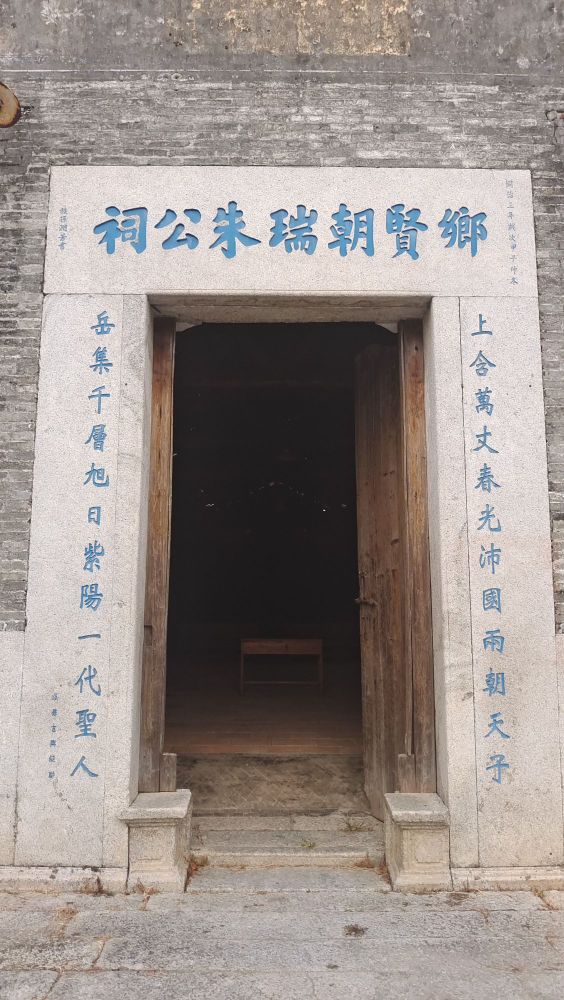 同治三年歲次甲子仲冬
鄉賢朝瑞朱公祠
上含萬丈春光沛國兩朝天子
岳集千層旭日紫陽一代聖人